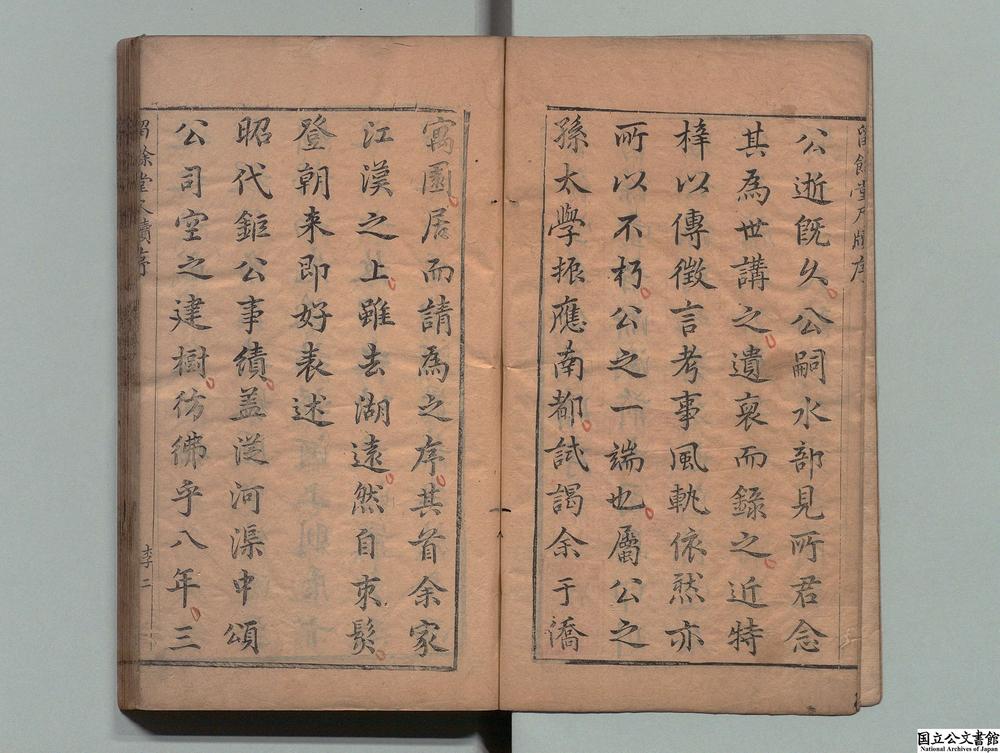 留餘堂尺牘序
公逝既久公嗣水部見所君念
其為世講之遺裒而錄之近特
梓以傳徵言考事風軌依然亦
所以不朽公之一端也屬公之
孫太學振應南都試謁余于僑
寓園居而請為之序其首余家
江漢之上雖去湖遠然自束髮
登朝来即好表述
昭代鉅公事績盖從河渠中頌
公司空之建樹彷彿乎八年三
留餘堂尺牘序
李二
国立公文書館
National Archives of Japan